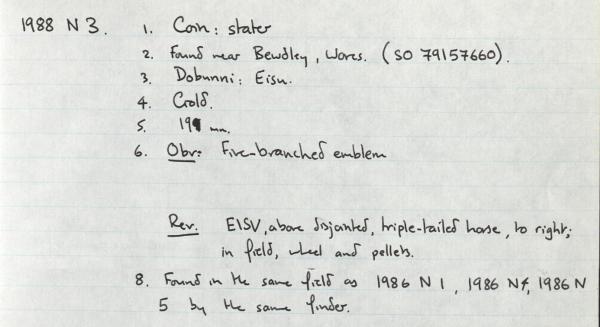 1988 N 3. 1. Coin: stater
2. Found near Bewdley, Worcs. (SO 79157660).
3. Dobunni: Eisu.
4. Gold.
5. 19 mm.
6. Obv: Five-branched emblem
Rev. EISV, above disjointed, triple-tailed horse, to right;
in field, wheel and pellets.
8. Found in the same field as 1986 N 1, 1986 N4, 1986 N
5 by the same finder.